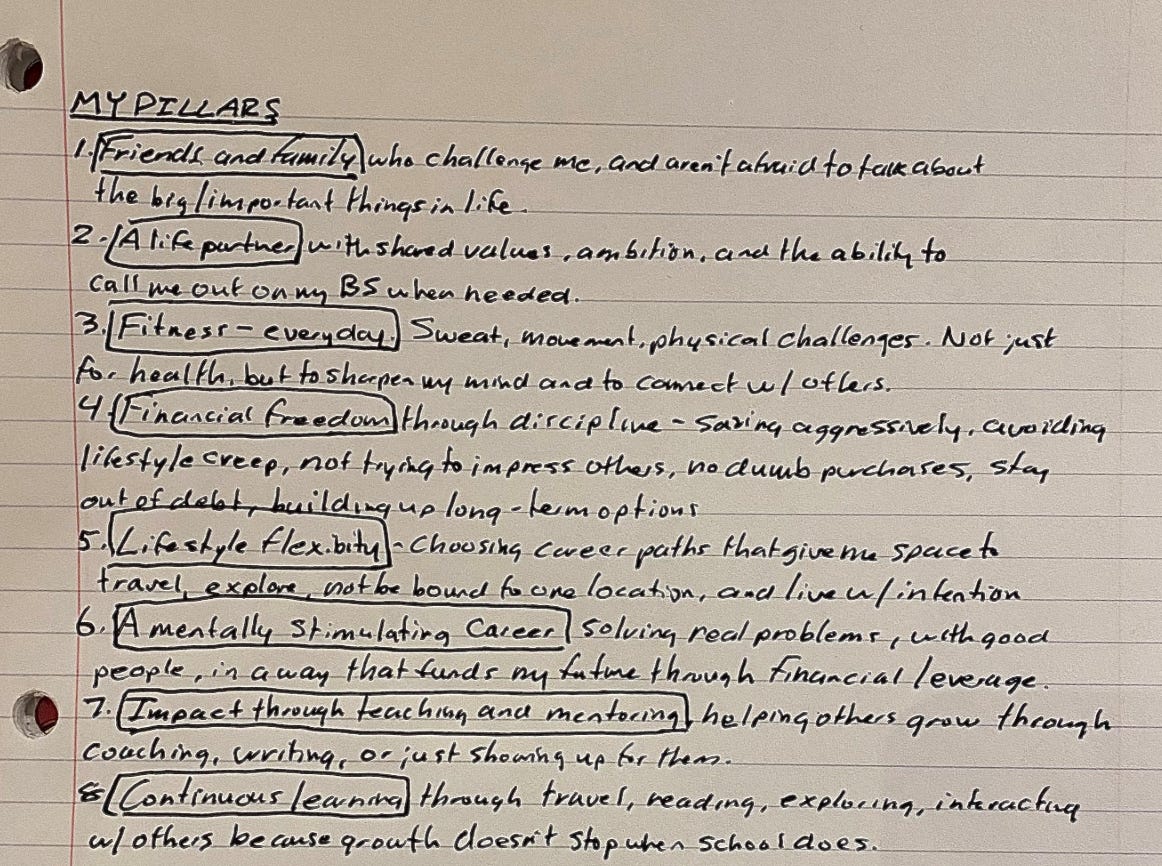 MY PILLARS
1. Friends and family who challenge me, and aren't afraid to talk about
the big/important things in life.
2. A life partner with shared values, ambition, and the ability to
call me out on my BS when needed.
3. Fitness - everyday. Sweat, movement, physical challenges. Not just
for health, but to sharpen my mind and to connect w/ others.
4. Financial freedom through discipline - saving aggressively, avoiding
lifestyle creep, not trying to impress others, no dumb purchases, stay
out of debt, building up long-term options
5. Lifestyle flexibity - choosing career paths that give me space to
travel, explore, not be bound to one location, and live w/ intention
6. A mentally stimulating career solving real problems, with good
people, in a way that funds my future through financial leverage.
7. Impact through teaching and mentoring, helping others grow through
coaching, writing, or just showing up for them.
8 Continuous learning through travel, reading, exploring, interacting
w/ others because growth doesn't stop when school does.